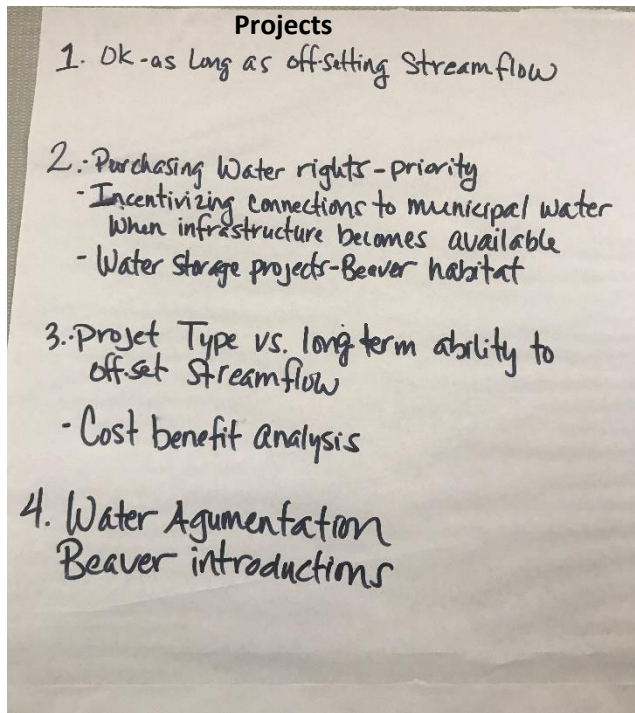 Projects
1. Ok-as Long as off-setting Streamflow
2.- Purchasing Water rights-priority
- Incentivizing connections to municipal water
When infrastructure becomes available
- Water Storage projects-Beaver habitat
3.- Projet Type vs. long term ability to
off-set Streamflow
- Cost benefit analysis
4. Water Agumentation
Beaver introductions